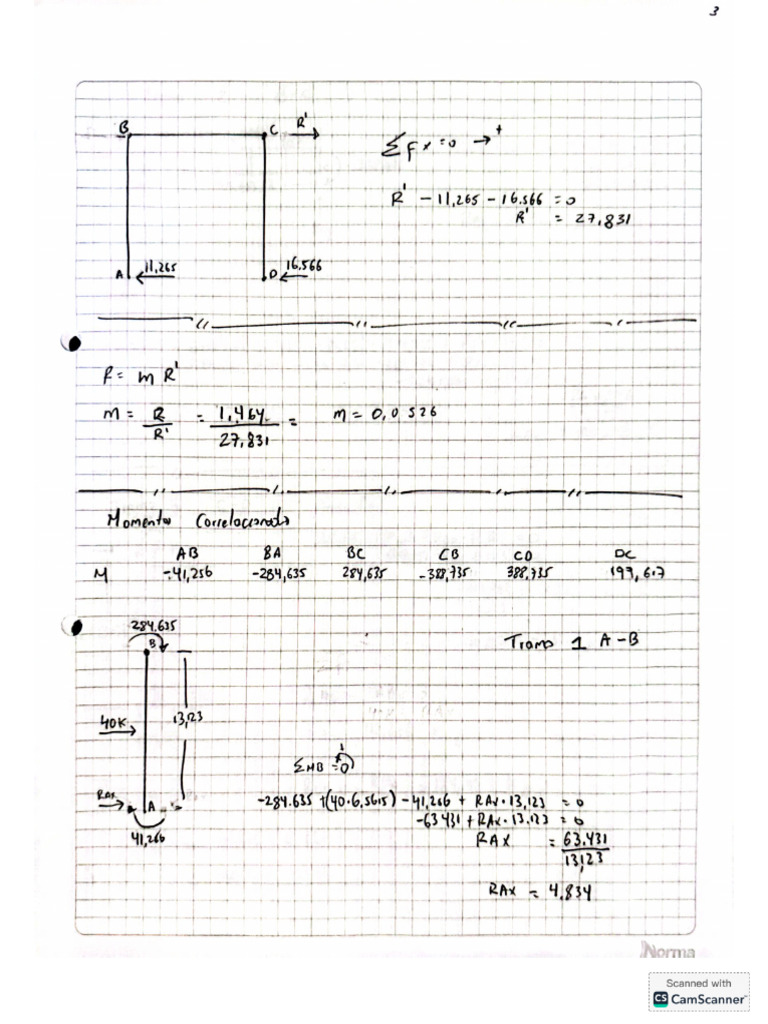 3
B C R'
ΣFx=0 →+
R' - 11,265 - 16.566 = 0
R' = 27,831
A 11,265 D 16,566
R = m R'
m = R/R' = 1,464/27,831 = m = 0,0526
Momentos Correlacionado
AB BA BC CB CD DC
M -41,256 -284,635 284,635 -388,735 388,735 199,617
284,635
B Tramo 1 A-B
40K 13,123
ΣMB = 0
RAx A
-284.635 + (40·6,5615) - 41,266 + RAx·13,123 = 0
-63431 + RAx·13,123 = 0
41,266
RAX = 63.431/13,123
RAX = 4,834
Norma
Scanned with
CS CamScanner